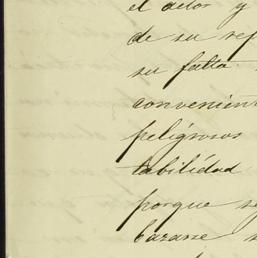 el actor y
de su rep
su falta
convenient
peligrosos
tabilidad
porque se
bazarse s